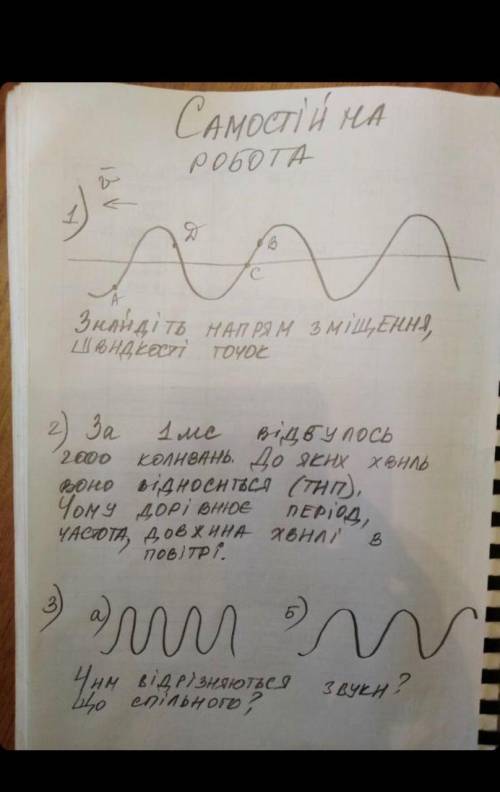 САМОСТІЙНА
РОБОТА
v
1)
Д
В
С
А
ЗНАЙДІТЬ НАПРЯМ ЗМІЩЕННЯ,
ШВИДКОСТІ ТОЧОК
2) За 1мс ВІДБУЛОСЬ
2000 КОЛИВАНЬ. ДО ЯКИХ ХВИЛЬ
ВОНО ВІДНОСИТЬСЯ (ТИП).
ЧОМУ ДОРІВНЮЄ ПЕРІОД,
ЧАСТОТА, ДОВЖИНА ХВИЛІ В
ПОВІТРІ.
3) а) б)
ЧИМ ВІДРІЗНЯЮТЬСЯ ЗВУКИ?
ЩО СПІЛЬНОГО?